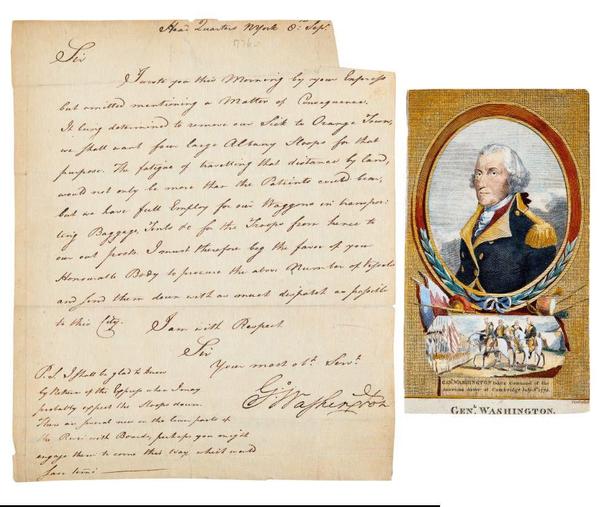 Head Quarters NYork 8th Sepr.
1776
Sir
I wrote you this Morning by your Express
but omitted mentioning a Matter of Consequence.
It being determined to remove our Sick to Orange Town,
we shall want four large Albany Sloops for that
purpose. The fatigue of travelling that distance by land,
would not only be more than the Patients could bear,
but we have full Employ for our Waggons in transpor:
ting Baggage, Tents &c for the Troops from hence to
our out posts. I must therefore beg the favor of your
Honourable Body to procure the above Number of Vessels
and send them down with as much despatch as possible
to this City.
I am with Respect
Sir
Your most obt. Servt.
Go Washington
P.S. I shall be glad to know
by Return of the Express when I may
probably expect the Sloops down.
There are several now on the lower parts of
the River with Boards, perhaps you might
engage them to come this way which would
save time
GENL. WASHINGTON takes Command of the
American Army at Cambridge July 3d. 1775.
GENL. WASHINGTON.